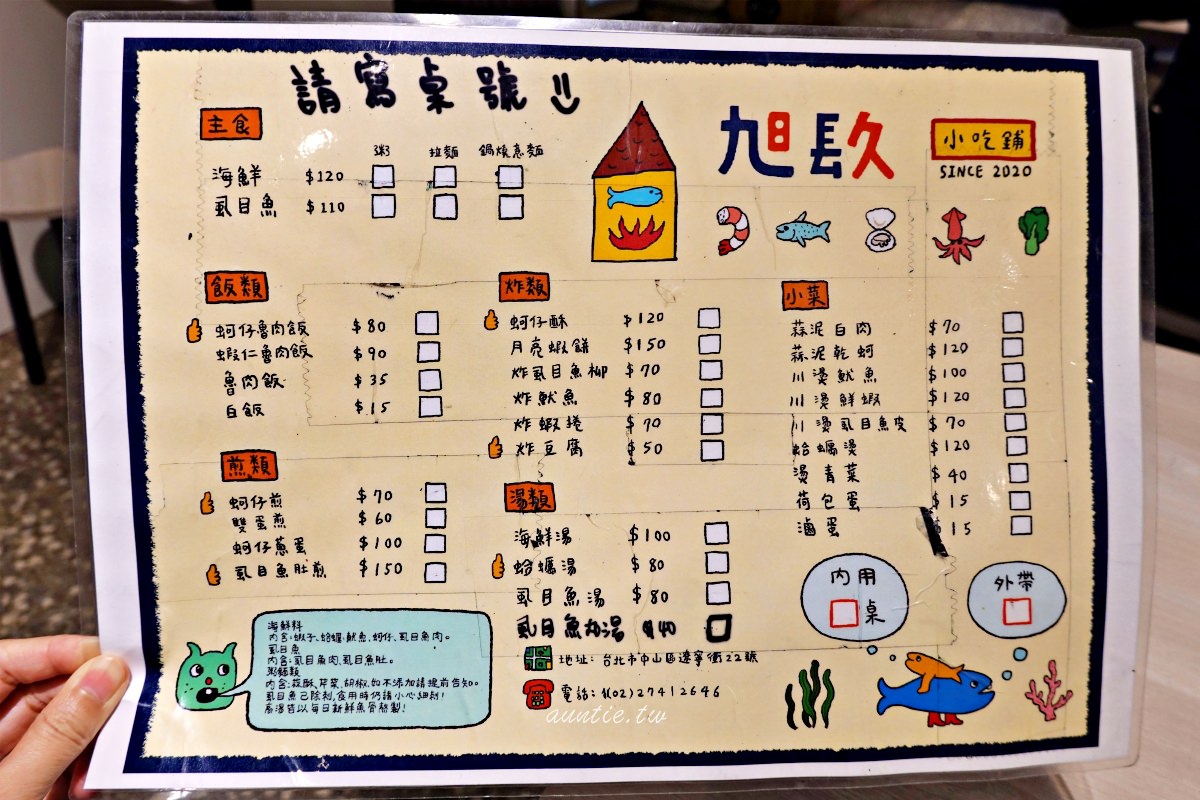 請寫桌號
主食
粥 拉麵 鍋燒意麵
海鮮 $120
虱目魚 $110
旭㫛久
小吃鋪
SINCE 2020
飯類
蚵仔魯肉飯 $80
蝦仁魯肉飯 $90
魯肉飯 $35
白飯 $15
煎類
蚵仔煎 $70
雙蛋煎 $60
蚵仔蔥蛋 $100
虱目魚肚煎 $150
炸類
蚵仔酥 $120
月亮蝦餅 $150
炸虱目魚柳 $70
炸魷魚 $80
炸蝦捲 $70
炸豆腐 $50
湯類
海鮮湯 $100
蛤蠣湯 $80
虱目魚湯 $80
虱目魚丸湯 $40
小菜
蒜泥白肉 $70
蒜泥乾蚵 $120
川燙魷魚 $100
川燙鮮蝦 $120
川燙虱目魚皮 $70
蛤蠣燙 $120
燙青菜 $40
荷包蛋 $15
滷蛋 $15
內用
桌
外帶
海鮮料
內含:蝦子、蛤蠣、魷魚、蚵仔、虱目魚肉。
虱目魚
內含:虱目魚肉、虱目魚肚。
粥麵類
內含:蒜酥、芹菜、胡椒,如不添加請提前告知。
虱目魚已除刺,食用時仍請小心細刺!
高湯皆以每日新鮮魚骨熬製!
地址: 台北市中山區遼寧街22號
電話: (02)27412646
auntie.tw